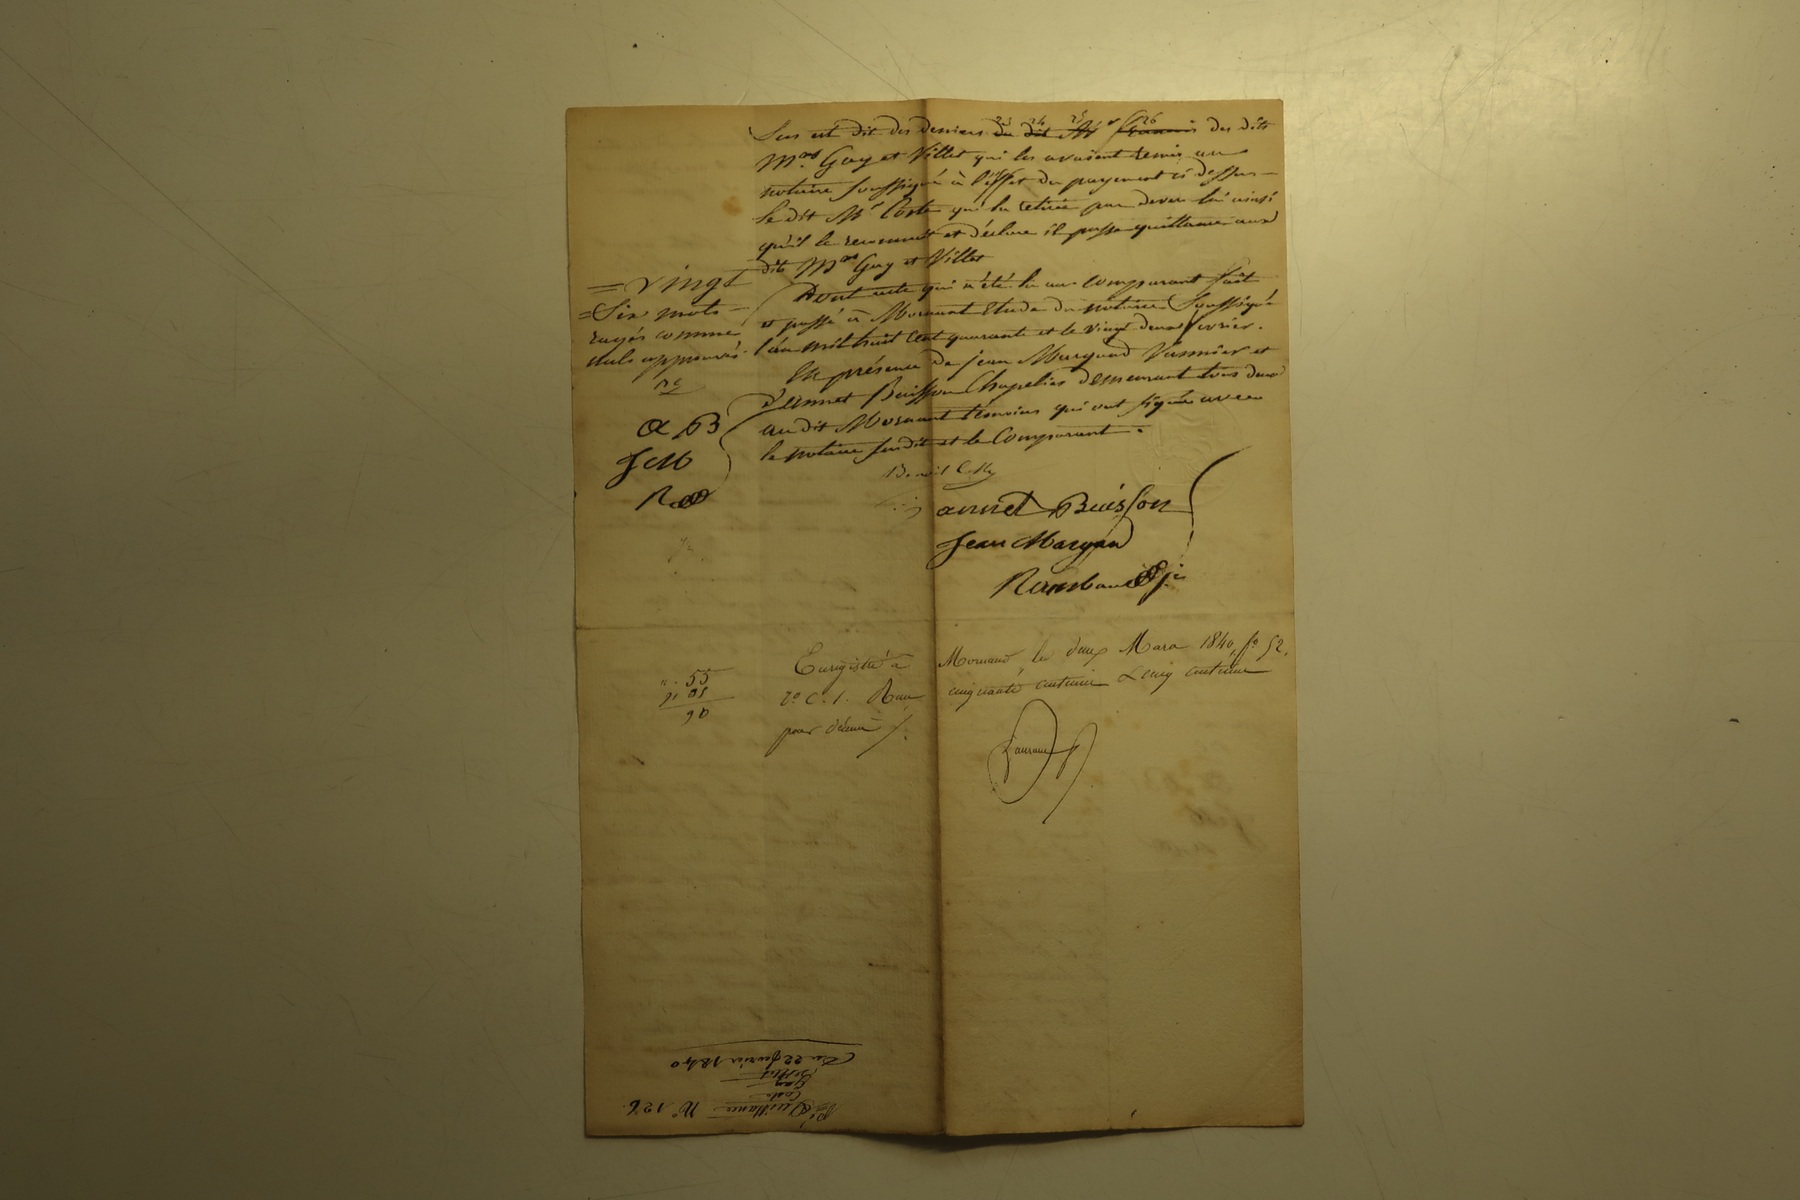 Sus est dit des deniers du dit Mr des dits
23 24 25 26
Mes Guy et Villet qui les avaient remis au
notaire soussigné à l'effet du payement ci dessus
le dit Mr Coste qui la retirée par devers lui ainsi
qu'il le reconnait et déclare il passe quittance aux
dits Mes Guy et Villet
Dont acte qui a été lu au comparant fait
et passé à Mornant Etude du notaire soussigné
l'an mil huit cent quarante et le vingt deux février.
En présence de jean Margand et
d'annet Buisson Chapelier demeurant tous deux
au dit Mornant témoins qui ont signé avec
le notaire susdit et le Comparant.
= vingt
= Six mots
rayés comme
nuls approuvés.
a B
J M
annet Buisson
Jean Margan
Enregistré à Mornant, le deux Mars 1840, fo 52,
Vo C. 1. Reçu cinquante centimes Cinq centimes
pour décime
55
05
Quittance No 126
Coste
Guy
Du 22 février 1840